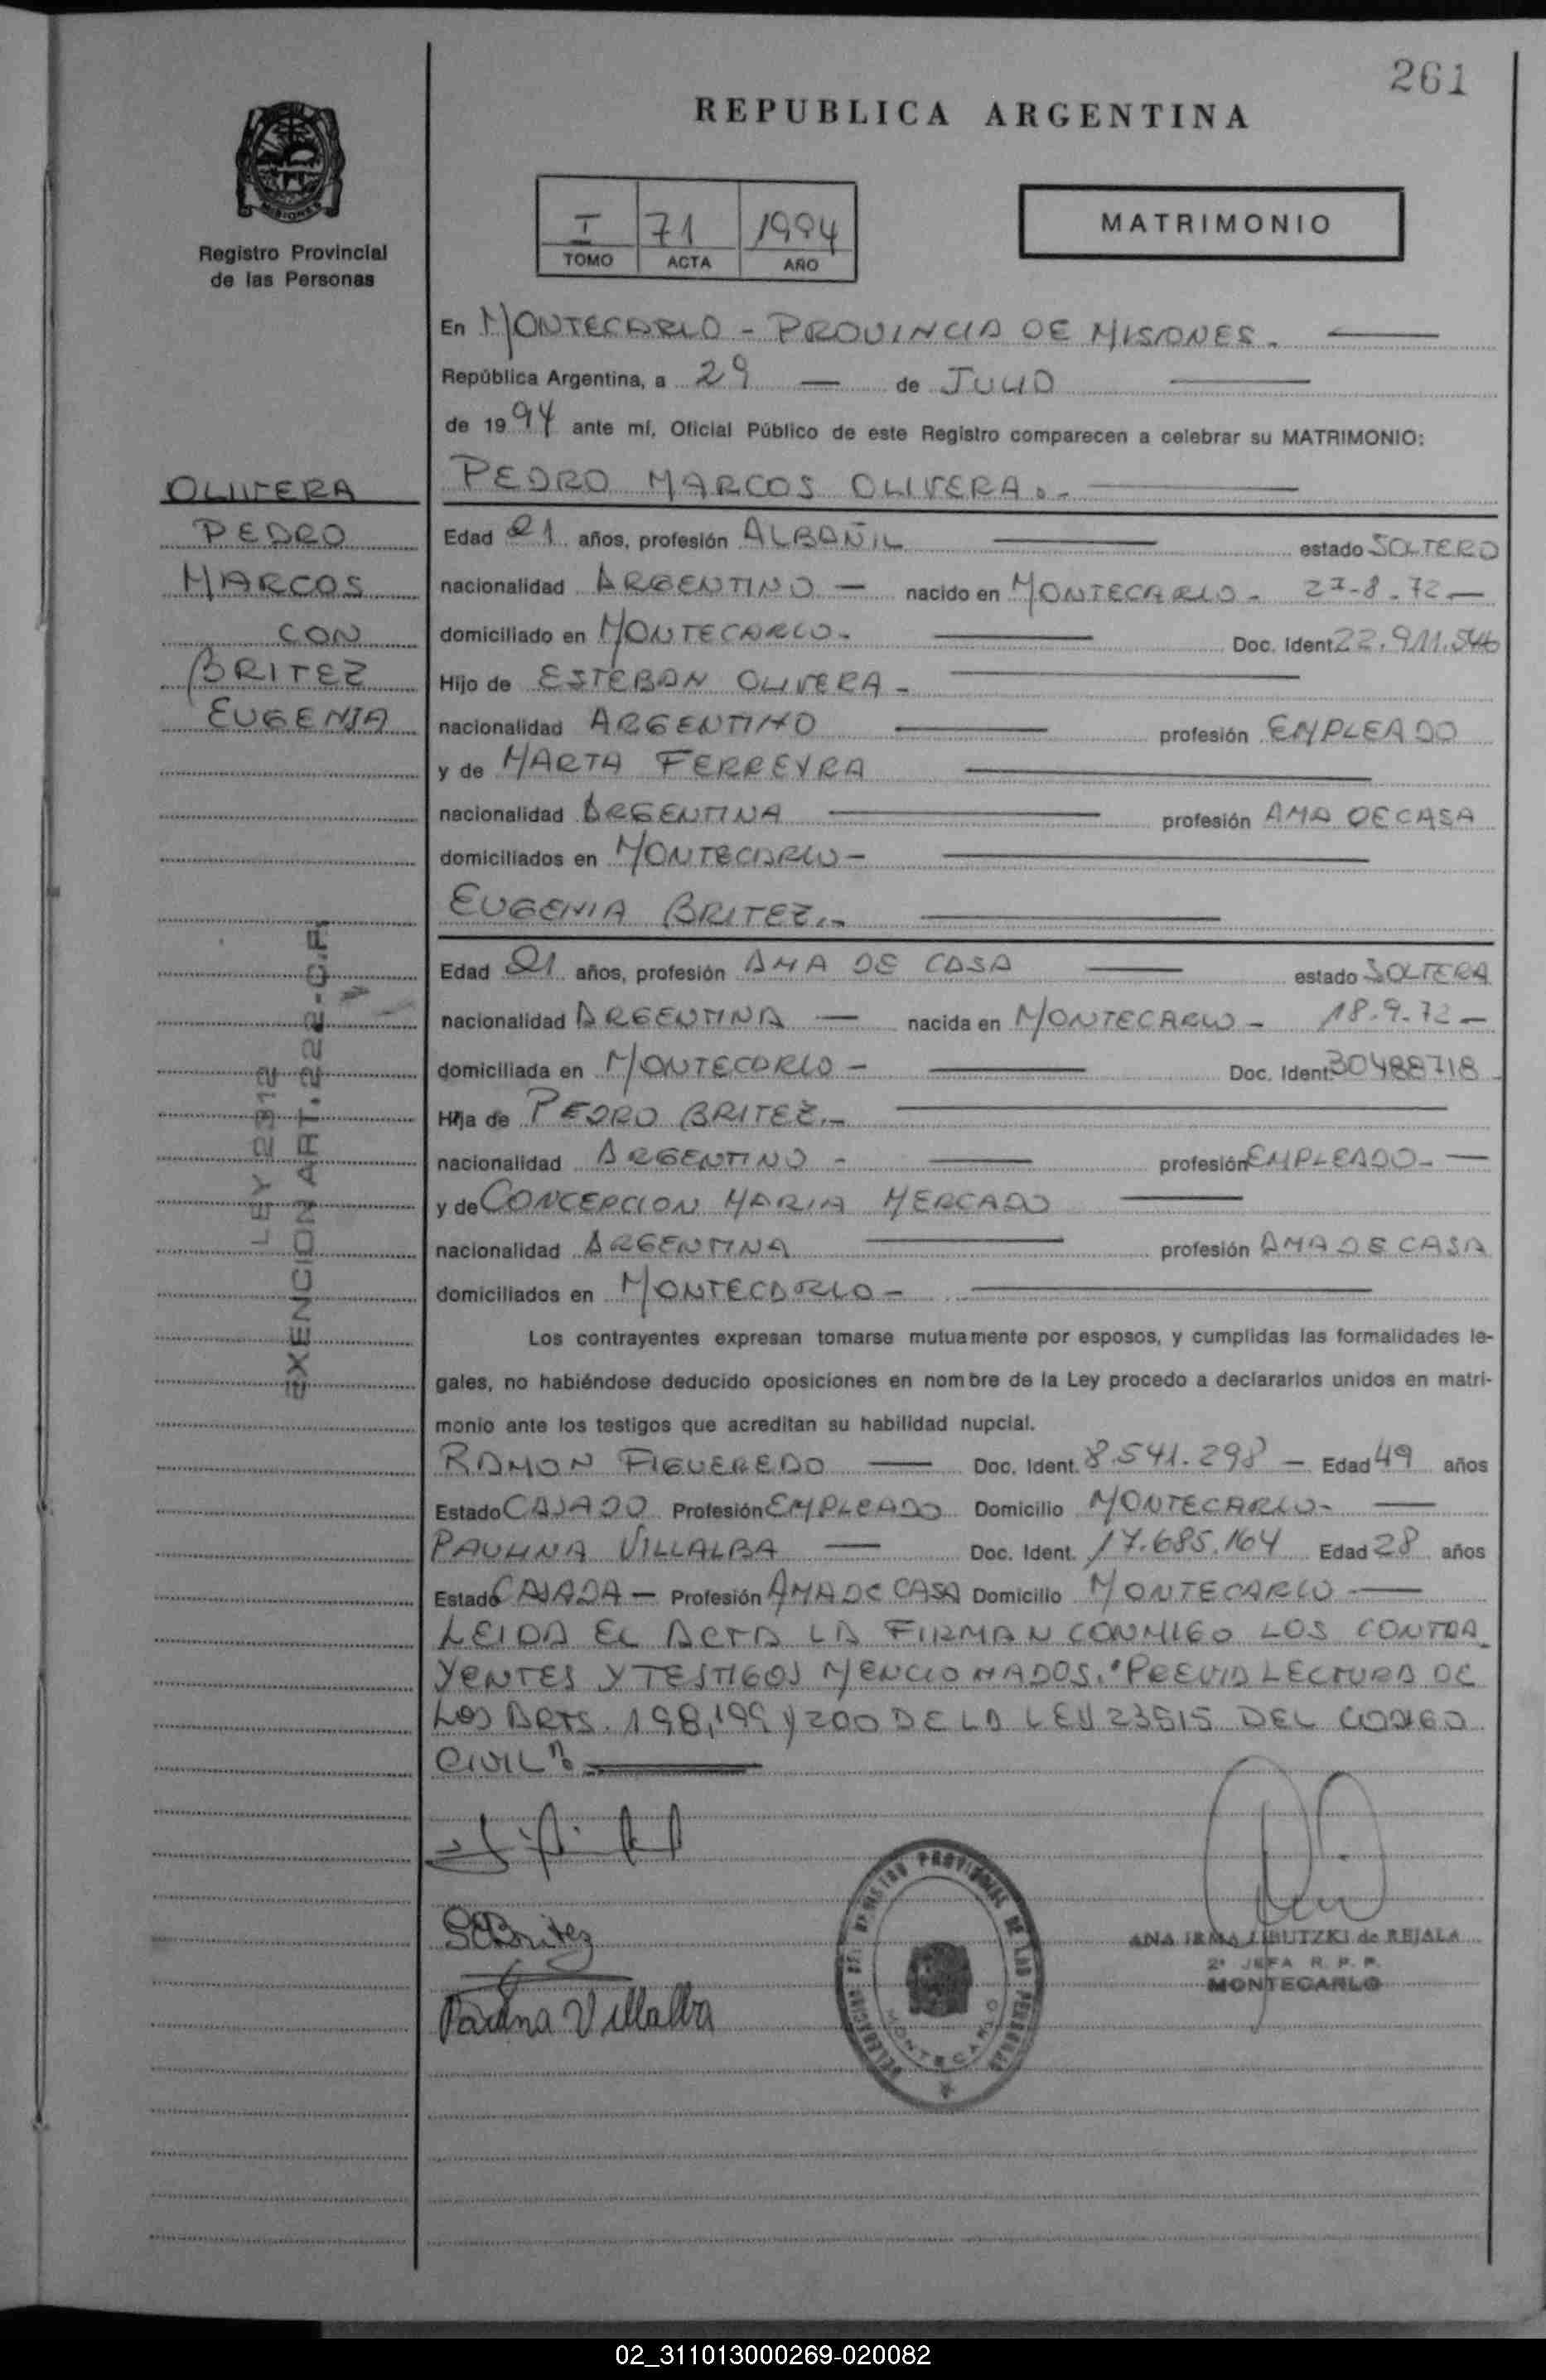 261
REPUBLICA ARGENTINA
MISIONES
Registro Provincial
de las Personas
I 71 1994
TOMO ACTA AÑO
MATRIMONIO
En MONTECARLO - PROVINCIA DE MISIONES.
República Argentina, a 29 — de JULIO
de 1994 ante mí, Oficial Público de este Registro comparecen a celebrar su MATRIMONIO:
OLIVERA
PEDRO
MARCOS
CON
BRITEZ
EUGENIA
LEY 2312
EXENCION ART. 222-C.P.
PEDRO MARCOS OLIVERA.-
Edad 21 años, profesión ALBAÑIL estado SOLTERO
nacionalidad ARGENTINO — nacido en MONTECARLO - 27-8-72 —
domiciliado en MONTECARLO- Doc. Ident. 22.911.546
Hijo de ESTEBAN OLIVERA -
nacionalidad ARGENTINO profesión EMPLEADO
y de MARTA FERREYRA
nacionalidad ARGENTINA profesión AMA DE CASA
domiciliados en MONTECARLO-
EUGENIA BRITEZ.-
Edad 21 años, profesión AMA DE CASA estado SOLTERA
nacionalidad ARGENTINA — nacida en MONTECARLO - 18-9-72 —
domiciliada en MONTECARLO - Doc. Ident. 30488718
Hija de PEDRO BRITEZ.-
nacionalidad ARGENTINO - profesión EMPLEADO- —
y de CONCEPCION MARIA MERCADO
nacionalidad ARGENTINA profesión AMA DE CASA
domiciliados en MONTECARLO -
Los contrayentes expresan tomarse mutuamente por esposos, y cumplidas las formalidades le-
gales, no habiéndose deducido oposiciones en nombre de la Ley procedo a declararlos unidos en matri-
monio ante los testigos que acreditan su habilidad nupcial.
RAMON FIGUEREDO — Doc. Ident. 8.541.298 — Edad 49 años
Estado CASADO Profesión EMPLEADO Domicilio MONTECARLO- —
PAULINA VILLALBA — Doc. Ident. 17.685.164 Edad 28 años
Estado CASADA — Profesión AMA DE CASA Domicilio MONTECARLO —
LEIDA EL ACTA LA FIRMAN CONMIGO LOS CONTRA_
YENTES Y TESTIGOS MENCIONADOS. "PREVIA LECTURA DE
LOS ARTS. 198, 199 y 200 DE LA LEY 23515 DEL CODIGO
CIVIL".
Britez
Paulina Villalba
DELEGACION DEL REGISTRO PROVINCIAL DE LAS PERSONAS
MONTECARLO
ANA IRMA LIBUTZKI de REJALA
2ª JEFA R. P. P.
MONTECARLO
02_311013000269-020082